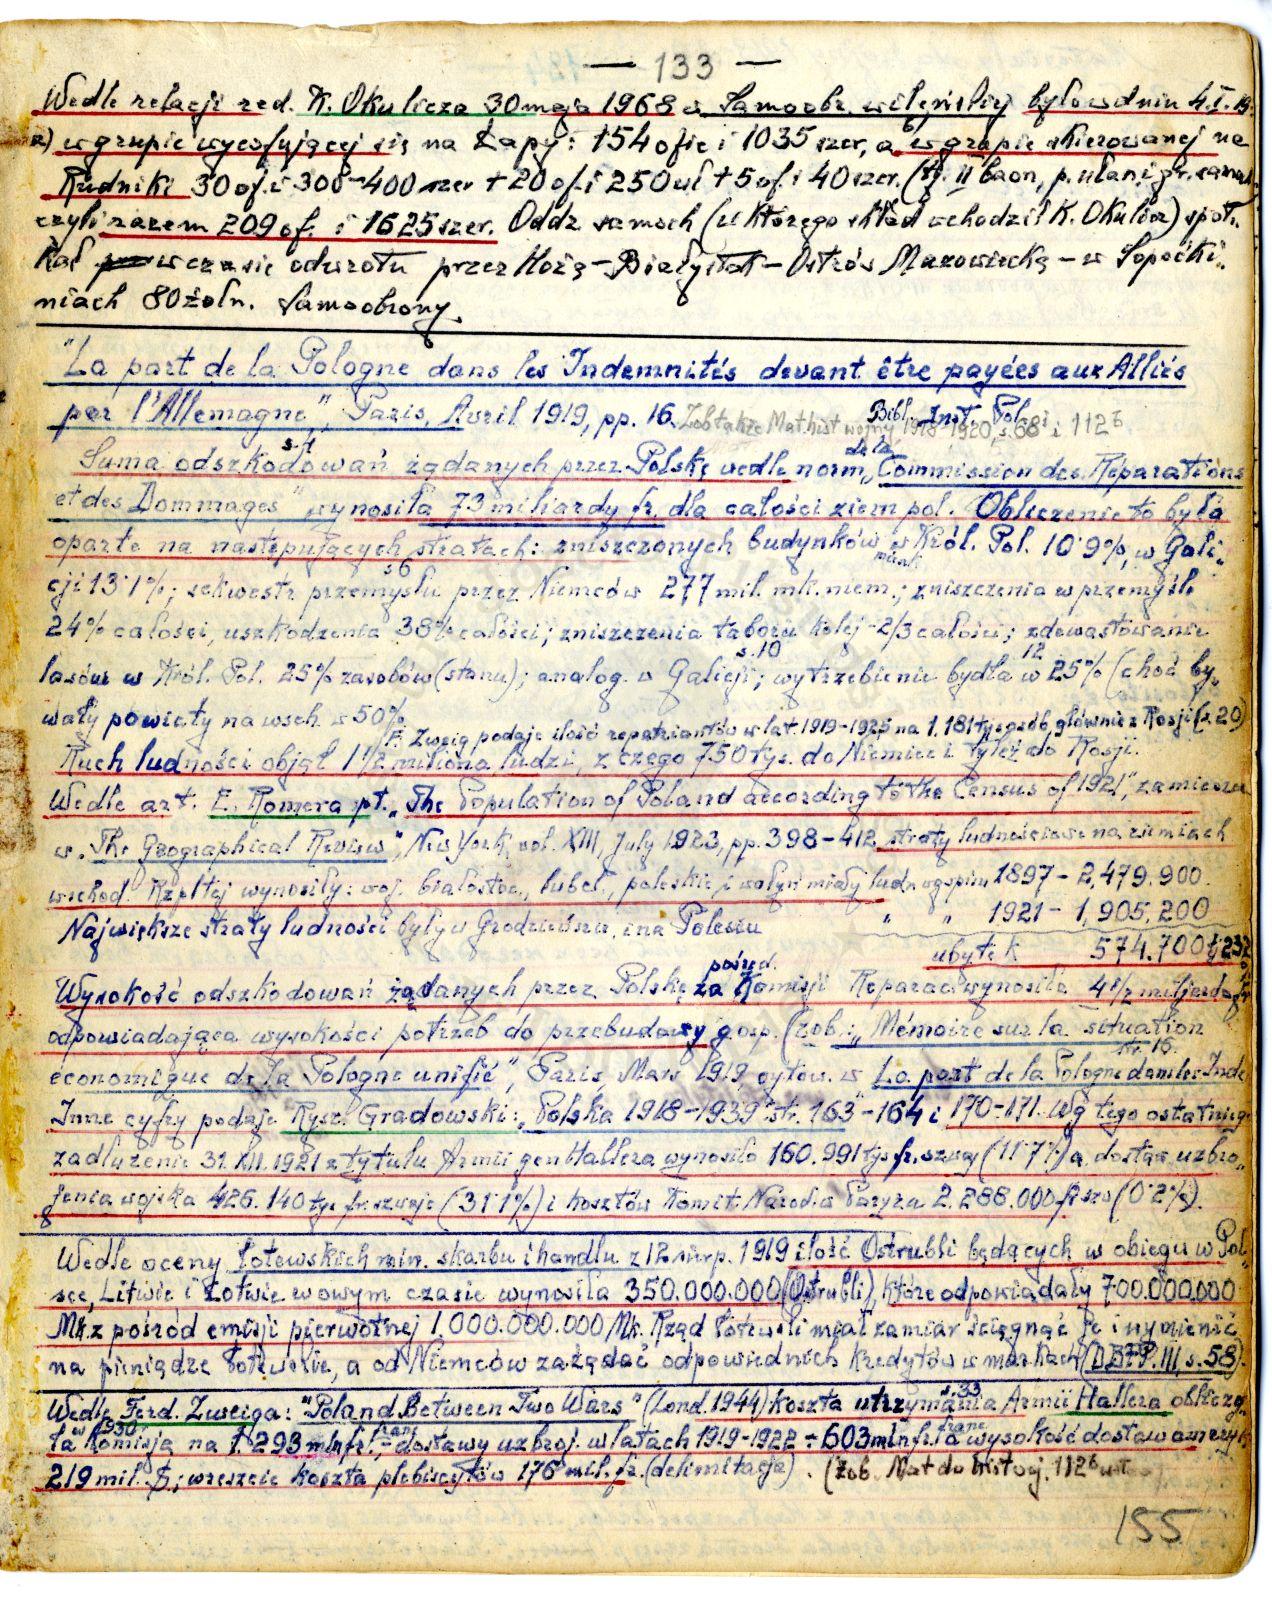 — 133 —
Wedle relacji red. K. Okulicza 30 maja 1968 w Samoobr. wileńskiej było w dniu 4.I.19
a) w grupie wycofującej się na Łapy: 154 ofic i 1035 szer, a b) w grupie skierowanej na
Rudniki 30 of. i 300–400 szer + 20 of. i 250 uł + 5 of. i 40 szer. (tj. II baon, p. ułan. i gr. samoch
czyli razem 209 of. i 1625 szer. Oddz samoch (w którego skład wchodził K. Okulicz) spot-
kał w czasie odwrotu przez Hożą – Białystok – Ostrów Mazowiecką – w Sopoćki-
niach 80 żołn. Samoobrony.
"La part de la Pologne dans les Indemnités devant être payées aux Alliés
par l'Allemagne", Paris, Avril 1919, pp. 16. Bibl. Inst. Pol.
Zob także Mat. hist wojny 1918–1920, s. 68 i 112b
s. 1 de la
Suma odszkodowań żądanych przez Polskę wedle norm „Commission des Réparations
et des Dommages" wynosiła 73 miliardy fr. dla całości ziem pol. Obliczenie to było
oparte na następujących stratach: zniszczonych budynków w Król. Pol. 10·9%, w Gali-
s 6
cji 13·1%; sekwestr przemysłu przez Niemców 277 mil. mk. niem.; zniszczenia w przemyśle
24% całości, uszkodzenia 38% całości; zniszczenia taboru kolej – 2/3 całości; zdewastowanie
s. 10 12
lasów w Król. Pol. 25% zasobów (stanu); analog. w Galicji; wytrzebienie bydła w 25% (choć by-
wały powiaty na wsch. w 50%
F. Zweig podaje ilość repatriantów w lat. 1919–1925 na 1.181 tys osób, głównie z Rosji (s. 20)
Ruch ludności objął 1 1/2 miliona ludzi, z czego 750 tys. do Niemiec i tyleż do Rosji.
Wedle art. E. Romera pt. „The Population of Poland according to the Census of 1921", zamieszcz
w „The Geographical Review", New York, vol. XIII, July 1923, pp. 398–412 straty ludnościowe na ziemiach
wschod. Rzpltej wynosiły: woj. białostoc., lubel., poleskie i wołyń miały ludn wg spisu 1897 – 2,479.900
" " 1921 – 1,905,200
Największe straty ludności były w Grodzieńskim i na Polesiu
ubytek 574.700
pośred.
Wysokość odszkodowań żądanych przez Polskę za Komisji Reparac. wynosiła 4 1/2 miljarda
odpowiadająca wysokości potrzeb do przebudowy gosp. (zob.: „Mémoire sur la situation
str. 16.
économique de la Pologne unifié", Paris, Mars 1919 cytow. w La part de la Pologne dans les Inde
Inne cyfry podaje Rysz. Gradowski: „Polska 1918–1939" str. 163–164 i 170–171. Wg tego ostatniego
zadłużenie 31 XII 1921 z tytułu Armii gen Hallera wynosiło 160.991 tys fr. szwaj (11·7%) a dostaw uzbro-
jenia wojska 426.140 tys fr. szwajc (31·1%) i kosztów Komit. Narod. w Paryżu 2.288.000 fr szw (0·2%).
Wedle oceny łotewskich min. skarbu i handlu z 12 sierp. 1919 ilość Ostrubli będących w obiegu w Pol-
sce, Litwie i Łotwie w owym czasie wynosiła 350.000.000 (Ostrubli), które odpowiadały 700.000.000
Mk. z pośród emisji pierwotnej 1.000.000.000 Mk. Rząd łotewski miał zamiar ściągnąć je i wymienić
na pieniądze łotewskie, a od Niemców zażądać odpowiednich kredytów w markach (s. 58).
s. 33
Wedle Ferd. Zweiga: "Poland Between Two Wars" (Lond. 1944) koszta utrzymania Armii Hallera obliczy-
w 1930 fran franc
ła Komisja na 1.293 mln fr. – dostawy uzbroj. w latach 1919–1922 – 603 mln fr. a wysokość dostaw ameryk
219 mil. $; wreszcie koszta plebiscytów 176 mil. fr. (delimitacja). (Zob. Mat do hist woj. 112b
155